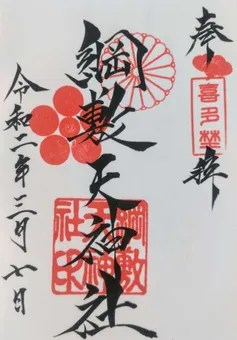 奉拝
喜多埜
綱敷天神社
綱敷天神社印
令和二年三月七日